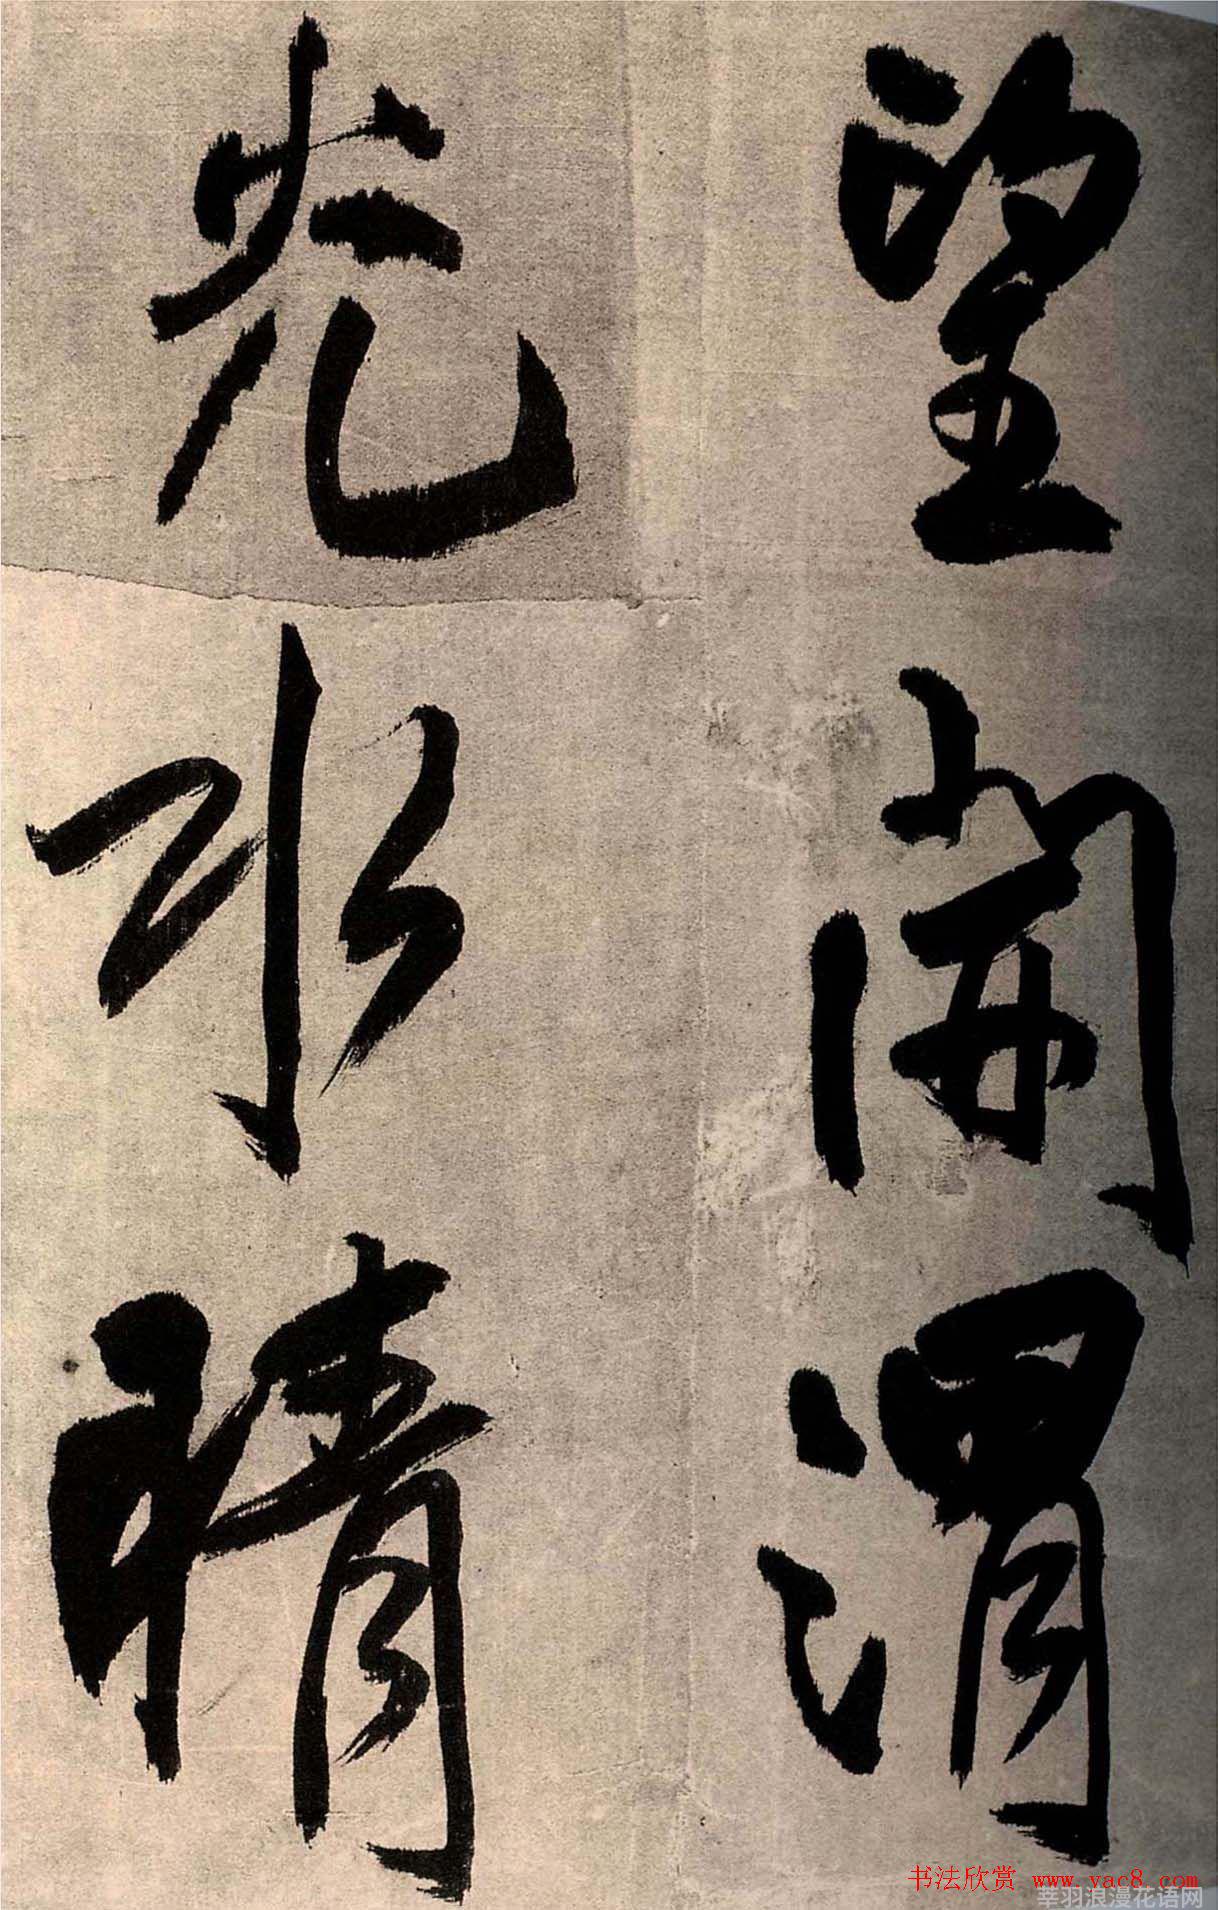 望開渭
光水晴
书法欣赏 www.yac8.com
莘羽浪漫花语网